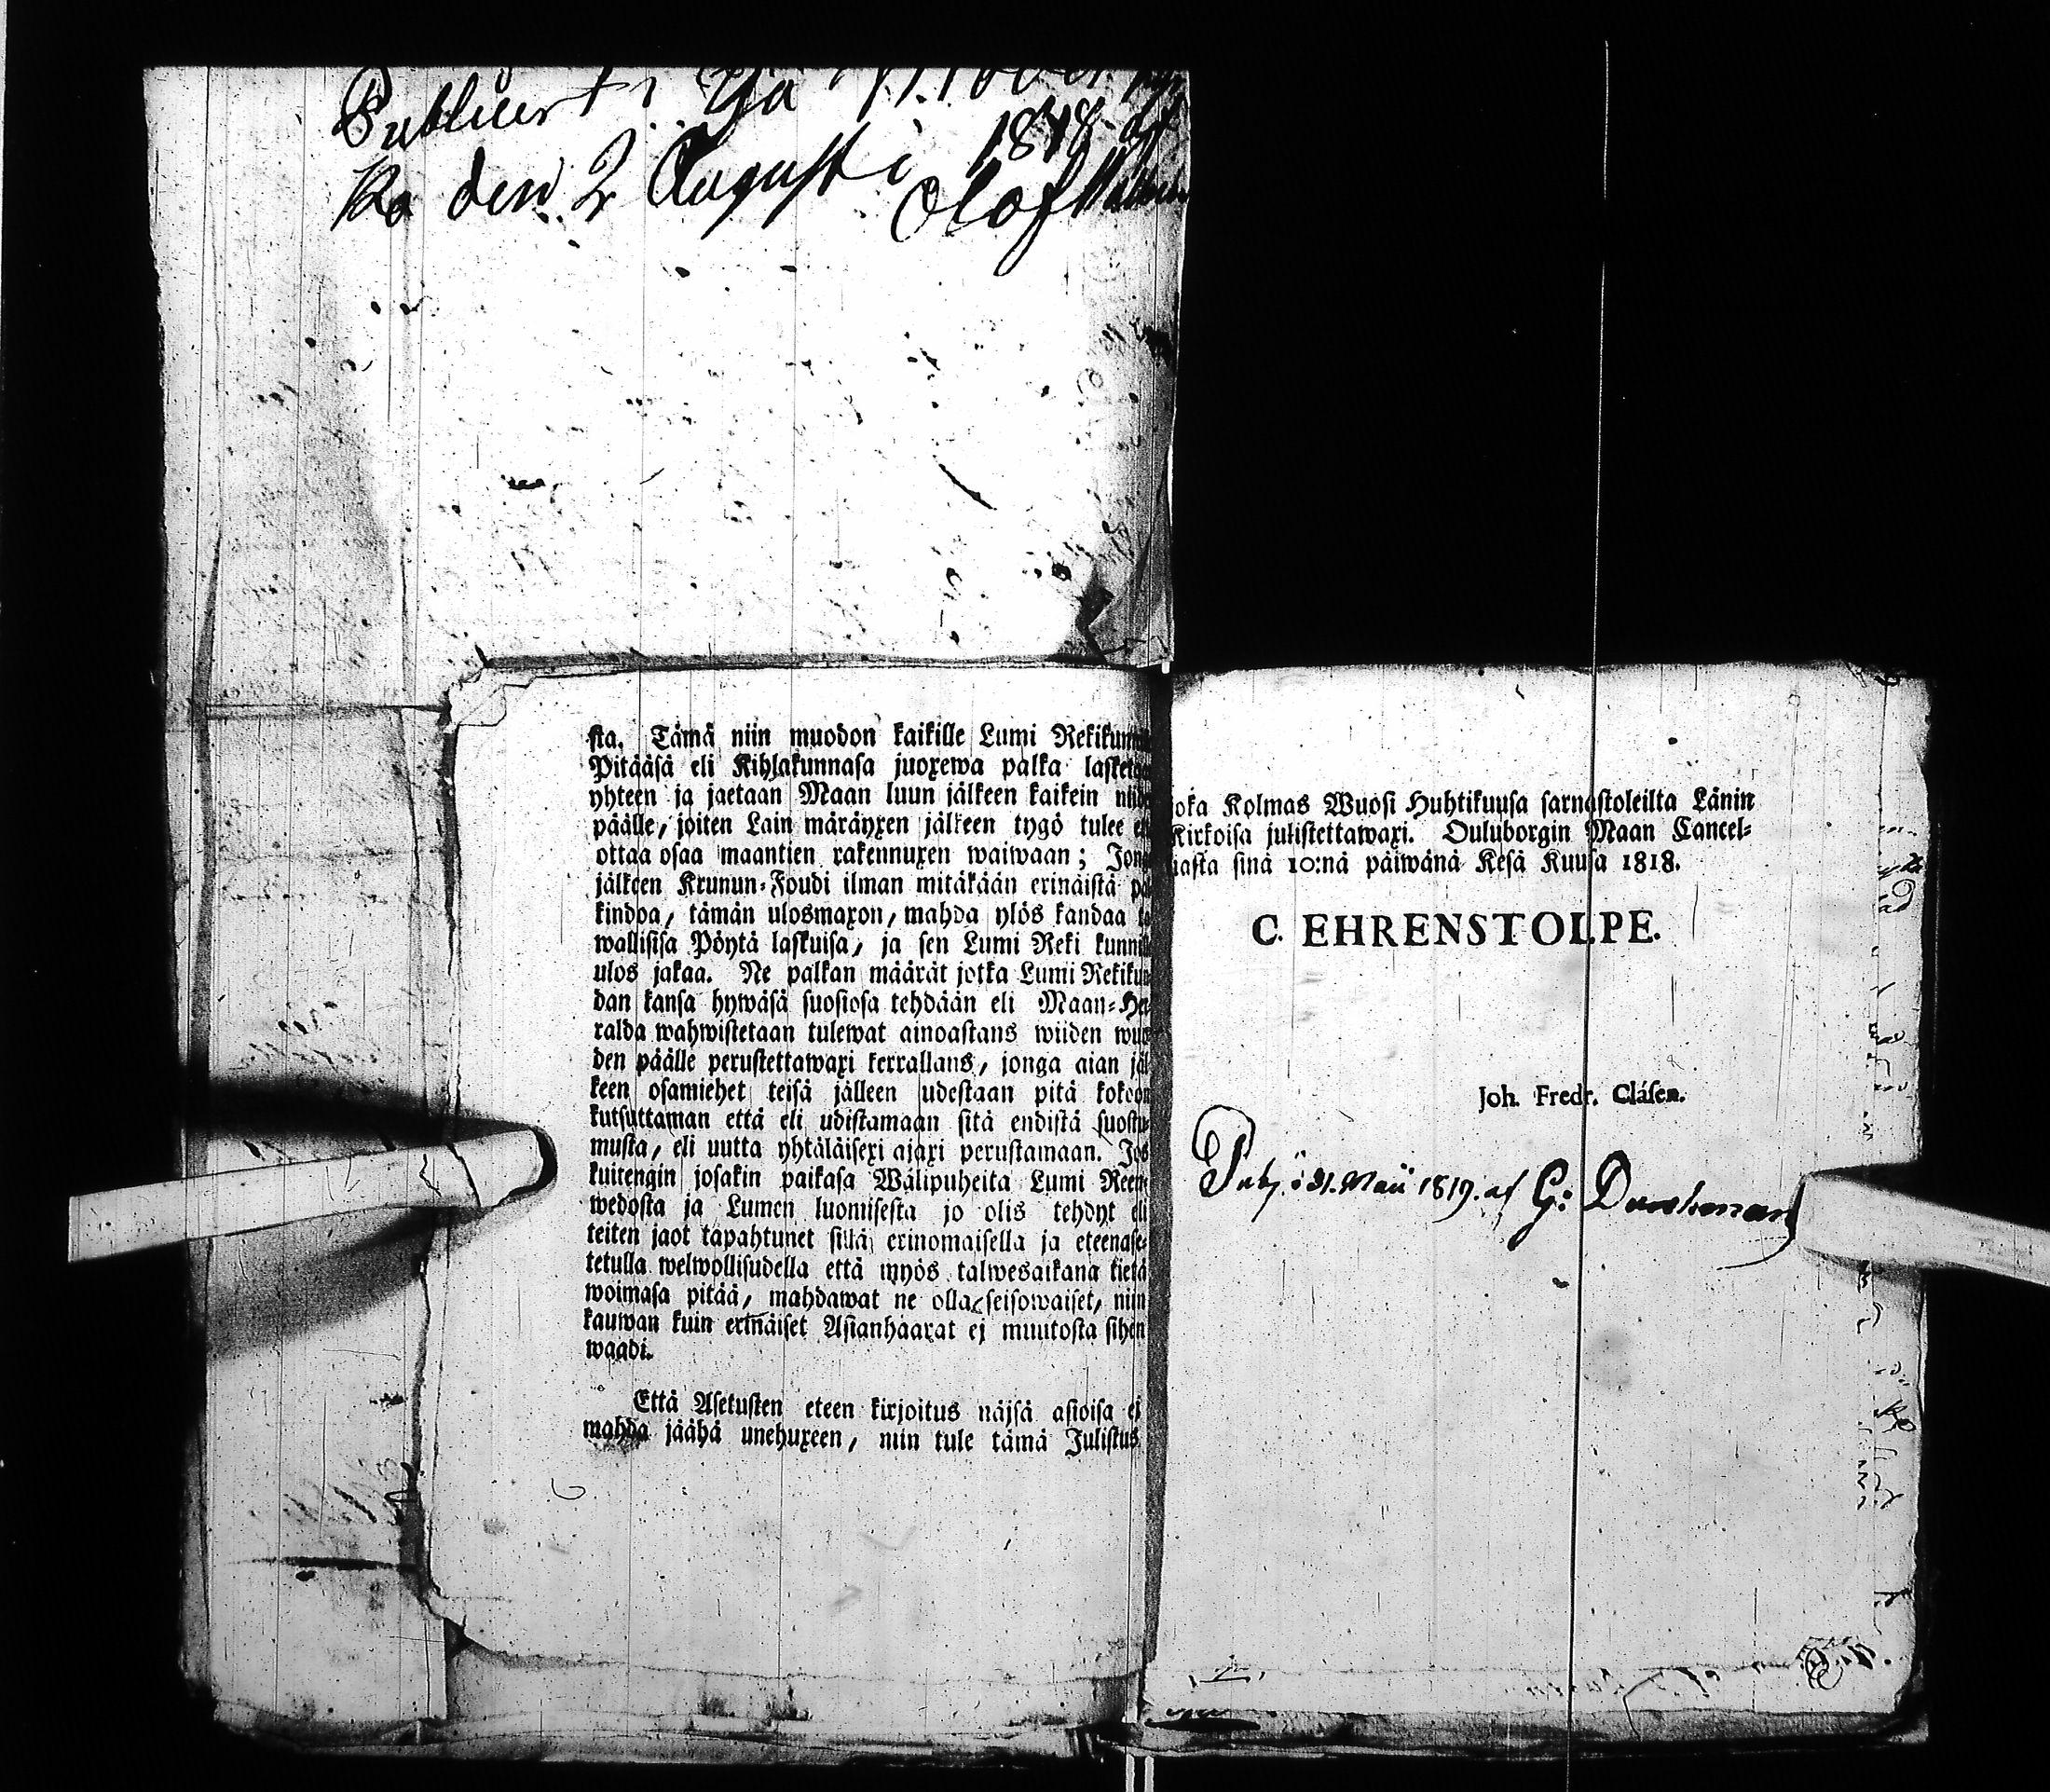 Publicert i
Ko den 2 Augusti 1818 af
Olof
sta. Tämä niin muodon kaikille Lumi
Pitääsä eli Kihlakunnasa juoxewa palka
yhteen ja jaetaan Maan luun jälkeen kaikein
päälle, joiten Lain märäyxen jälkeen tygö tulee
ottaa osaa maantien rakennuxen waiwaan;
jälkeen Krunun-Foudi ilman mitäkään erinäistä
kindoa, tämän ulosmaxon, mahda ylös kandaa
wallisisa Pöytä laskuisa, ja sen Lumi Reki
ulos jakaa. Ne palkan määrät jotka Lumi
dan kansa hywäsä suosiosa tehdään eli Maan-Her-
ralda wahwistetaan tulewat ainoastans wiiden
den päälle perustettawaxi kerrallans, jonga aian jäl
keen osamiehet teisä jälleen udestaan pitä kokoon
kutsuttaman että eli udistamaan sitä endistä suostu-
musta, eli uutta yhtäläisexi ajaxi perustamaan. Jos
kuitengin josakin paikasa Wälipuheita Lumi Reen
wedosta ja Lumen luomisesta jo olis tehdyt eli
teiten jaot tapahtunet sillä erinomaisella ja eteenase-
tetulla welwollisudella että myös talwesaikana tietä
woimasa pitää, mahdawat ne olla seisowaiset, niin
kauwan kuin erinäiset Asianhaarat ej muutosta sihen
waadi.
Että Asetusten eteen kirjoitus näjsä asioisa ej
mahda jäähä unehuxeen, niin tule tämä Julistus
joka Kolmas Wuosi Huhtikuusa sarnastoleilta Länin
Kirkoisa julistettawaxi. Ouluborgin Maan Cancel-
liasta sinä 10:nä päiwänä Kesä Kuusa 1818.
C. EHRENSTOLPE.
Joh. Fredr. Clásen.
Publ. i 31. Maii 1819. af G: